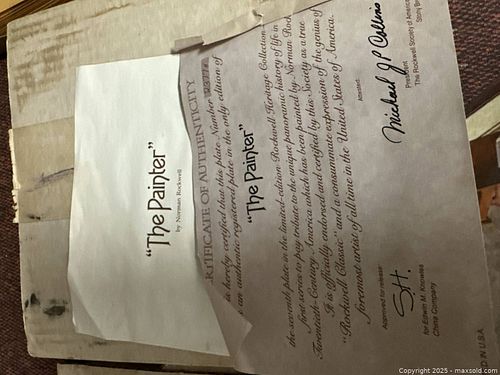 "The Painter"
by Norman Rockwell
RTIFICATE OF AUTHENTICITY
is hereby certified that this plate Number
is an authentic registered plate in the only edition of
"The Painter"
the seventh plate in the limited-edition Rockwell Heritage Collection
first series to pay tribute to the unique panoramic history of life in
Twentieth-Century America which has been painted by Norman Rock
It is officially endorsed and certified by this Society as a true
"Rockwell Classic" and a consummate expression of the genius of
foremost artist of all time in the United States of America.
Approved for release:
S.H.
for Edwin M. Knowles
China Company
Attested:
Michael J P Collins
President
The Rockwell Society of America
Stony Br
D IN U.S.A.
Copyright 2025 - maxsold.com